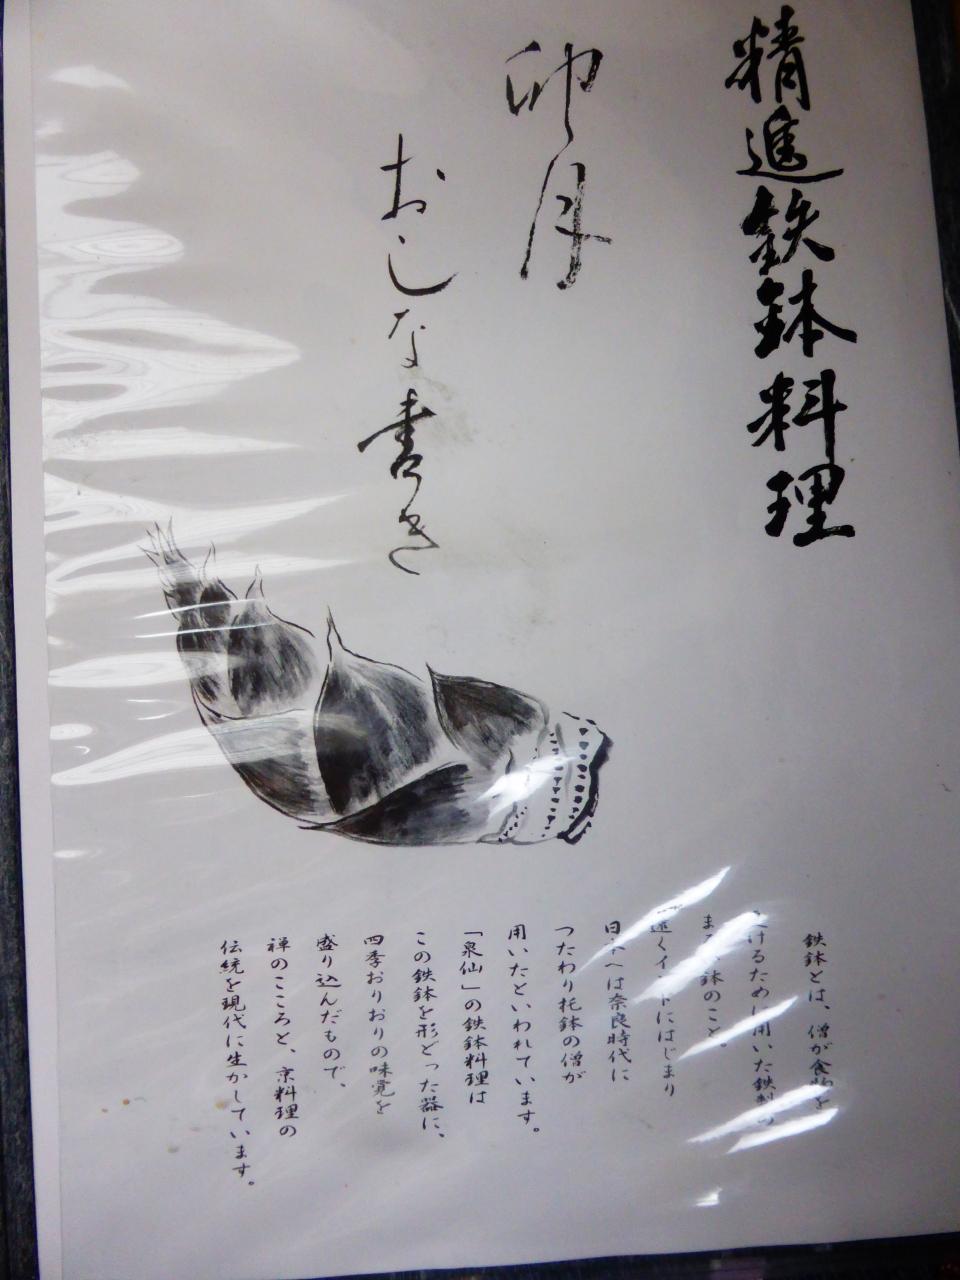 精進鉄鉢料理
卯月
おしな書き
鉄鉢とは、僧が食物を
けるために用いた鉄製の
まるい鉢のこと。
遠くインドにはじまり
日本へは奈良時代に
つたわり托鉢の僧が
用いたといわれています。
「泉仙」の鉄鉢料理は
この鉄鉢を形どった器に、
四季おりおりの味覚を
盛り込んだもので、
禅のこころと、京料理の
伝統を現代に生かしています。